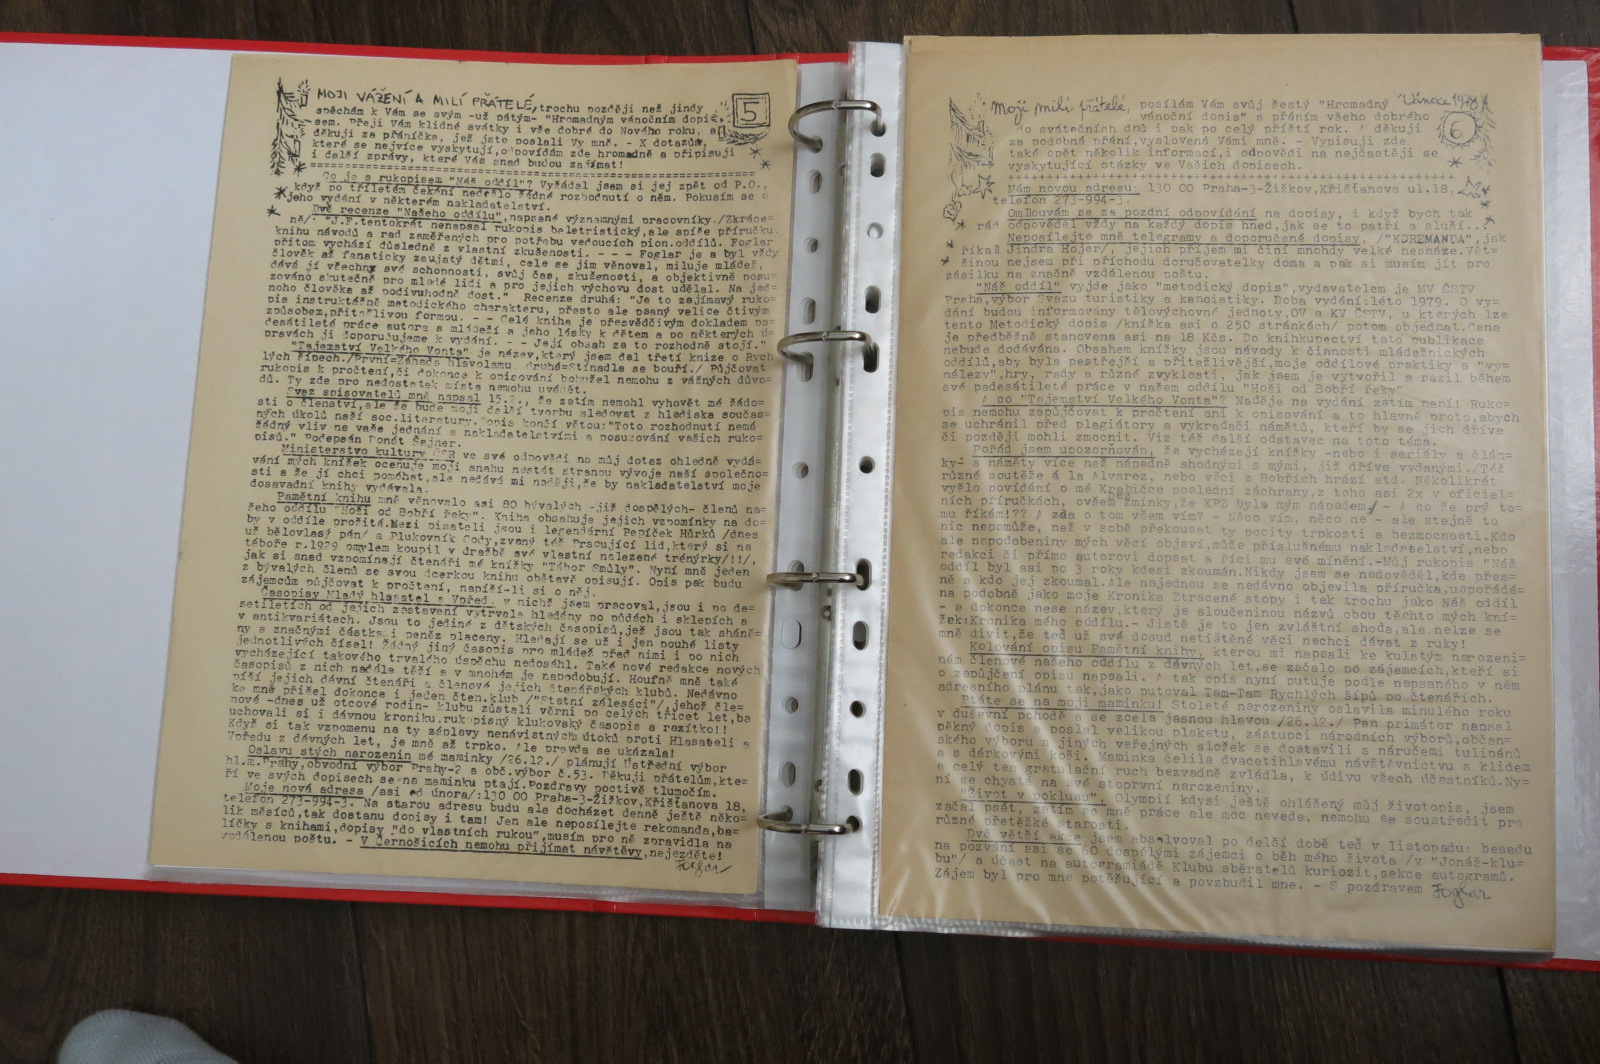 MOJI VÁŽENÍ A MILÍ PŘÁTELÉ, trochu později než jindy
spěchám k Vám se svým -už pátým- "Hromadným vánočním dopi=
sem. Přeji Vám klidné svátky i vše dobré do Nového roku, a
děkuji za přáníčka, jež jste poslali Vy mně. - K dotazům,
které se nejvíce vyskytují,odpovídám zde hromadně a připisuji
i další zprávy, které Vás snad budou zajímat!
5
Co je s rukopisem "Náš oddíl"? Vyžádal jsem si jej zpět od P.O.,
když po tříletém čekání nedošlo žádné rozhodnutí o něm. Pokusím se o
jeho vydání v některém nakladatelství.
Dvě recenze "Našeho oddílu",napsané význačnými pracovníky./Zkráce=
ně/ "J.F.tentokrát nenapsal rukopis beletristický,ale spíše příručku
knihu návodů a rad zaměřených pro potřebu vedoucích pion.oddílů. Foglar
přitom vychází důsledně z vlastní zkušenosti. - - - Foglar je a byl vždy
člověk až fanaticky zaujatý dětmi, cele se jim věnoval, miluje mládež,
dává jí všechny své schopnosti, svůj čas, zkušenosti, a objektivně posu=
zováno skutečně pro mladé lidi a pro jejich výchovu dost udělal. Na jed=
noho člověka až podivuhodně dost." Recenze druhá: "Je to zajímavý ruko=
pis instruktážně metodického charakteru, přesto ale psaný velice čtivým
způsobem,přitažlivou formou. - - Celá kniha je přesvědčivým dokladem pa=
desátileté práce autora s mládeží a jeho lásky k dětem a po některých ú=
pravách ji doporučujeme k vydání. - - Její obsah za to rozhodně stojí."
"Tajemství Velkého Vonta" je název,který jsem dal třetí knize o Rych
lých šípech./První=Záhada hlavolamu, druhá=Stínadla se bouří./ Půjčovat
rukopis k pročtení,či dokonce k opisování bohužel nemohu z vážných důvo=
dů. Ty zde pro nedostatek místa nemohu uvádět.
Svaz spisovatelů mně napsal 15.2., že zatím nemohl vyhovět mé žádo=
sti o členství,ale že bude moji další tvorbu sledovat z hlediska součas=
ných úkolů naší soc.literatury.Dopis končí větou:"Toto rozhodnutí nemá
žádný vliv na vaše jednání s nakladatelstvími a posuzování vašich ruko=
pisů." Podepsán Donát Šajner.
Ministerstvo kultury ČSR ve své odpovědi na můj dotaz ohledně vydá=
vání mých knížek oceňuje moji snahu nestát stranou vývoje naší společno=
sti a že jí chci pomáhat,ale nedává mi naději,že by nakladatelství moje
dosavadní knihy vydávala.
Pamětní knihu mně věnovalo asi 80 bývalých -již dospělých- členů na=
šeho oddílu "Hoši od Bobří řeky". Kniha obsahuje jejich vzpomínky na do=
by v oddíle prožité.Mezi pisateli jsou i legendární Pepíček Hůrků /dnes
už bělovlasý pán/ a Plukovník Cody,zvaný též Pracující lid,který si na
táboře r.1929 omylem koupil v dražbě své vlastní nalezené trenýrky/!!/,
jak si snad vzpomínají čtenáři mé knížky "Tábor Smůly". Nyní mně jeden
z bývalých členů se svou dcerkou knihu obětavě opisují. Opis pak budu
zájemcům půjčovat k pročtení, napíší-li si o něj.
Časopisy Mladý hlasatel a Vpřed, v nichž jsem pracoval,jsou i po de=
setiletích od jejich zastavení vytrvale hledány po půdách i sklepích a
v antikvariátech. Jsou to jediné z dětských časopisů,jež jsou tak sháně=
ny a značnými částkami peněz placeny. Hledají se už i jen pouhé listy
jednotlivých čísel! Žádný jiný časopis pro mládež před nimi i po nich
vycházející takového trvalého úspěchu nedosáhl. Také nové redakce nových
časopisů z nich nadále těží a v mnohém je napodobují. Houfně mně také
píší jejich dávní čtenáři a členové jejich čtenářských klubů. Nedávno
ke mně přišel dokonce i jeden čten.klub /"Statní zálesáci"/,jehož čle=
nové -dnes už otcové rodin- klubu zůstali věrni po celých třicet let,ba
uchovali si i dávnou kroniku,rukopisný klukovský časopis a razítko!!
Když si tak vzpomenu na ty záplavy nenávistných útoků proti Hlasateli a
Vpředu z dávných let, je mně až trpko. Ale pravda se ukázala!
Oslavu stých narozenin mé maminky /26.12./ plánují Ústřední výbor
hl.m.Prahy,obvodní výbor Prahy-2 a obč.výbor č.53. Děkuji přátelům,kte=
ří ve svých dopisech se na maminku ptají.Pozdravy poctivě tlumočím.
Moje nová adresa /asi od února/:130 00 Praha-3-Žižkov,Křišťanova 18,
telefon 273-994-3. Na starou adresu budu ale docházet denně ještě něko=
lik měsíců,tak dostanu dopisy i tam! Jen ale neposílejte rekomanda,ba=
líčky s knihami,dopisy "do vlastních rukou",musím pro ně zpravidla na
vzdálenou poštu. - V Černošicích nemohu přijímat návštěvy,nejezděte!
Foglar
Moji milí přátelé, posílám Vám svůj šestý "Hromadný Vánoce 1978
vánoční dopis" s přáním všeho dobrého
do svátečních dnů i pak po celý příští rok. A děkuji
za podobná přání,vyslovená Vámi mně. - Vypisuji zde
také opět několik informací,i odpovědi na nejčastěji se
vyskytující otázky ve Vašich dopisech.
6
++++++++++++++++++++++++++++++++++++++++++++++++
Mám novou adresu: 130 00 Praha-3-Žižkov,Křišťanova ul.18,
telefon 273-994-3.
Omlouvám se za pozdní odpovídání na dopisy, i když bych tak
rád odpověděl vždy na každý dopis hned,jak se to patří a sluší..
Neposílejte mně telegramy a doporučená dopisy, /"KOREMANDA",jak
říkal Jindra Hojer/, jejich příjem mi činí mnohdy velké nesnáze.Vět=
šinou nejsem při příchodu doručovatelky doma a pak si musím jít pro
zásilku na značně vzdálenou poštu.
"Náš oddíl" vyjde jako "metodický dopis",vydavatelem je MV ČSTV
Praha,výbor Svazu turistiky a kanoistiky. Doba vydání:léto 1979. O vy=
dání budou informovány tělovýchovné jednoty,OV a KV ČSTV, u kterých lze
tento Metodický dopis /knížka asi o 250 stránkách/ potom objednat.Cena
je předběžně stanovena asi na 18 Kčs. Do knihkupectví tato publikace
nebude dodávána. Obsahem knížky jsou návody k činnosti mládežnických
oddílů,aby byla pestřejší a přitažlivější,moje oddílové praktiky a "vy=
nálezy",hry, rady a různé zvyklosti, jak jsem je vytvořil a razil během
své padesátileté práce v našem oddílu "Hoši od Bobří řeky".
A co "Tajemství Velkého Vonta"? Naděje na vydání zatím není! Ruko=
pis nemohu zapůjčovat k pročtení ani k opisování a to hlavně proto,abych
se uchránil před plagiátory a vykradači námětů, kteří by se jich dříve
či později mohli zmocnit. Viz též další odstavec na toto téma.
Pořád jsem upozorňován, že vycházejí knížky -nebo i seriály a člán=
ky- s náměty více než nápadně shodnými s mými, již dříve vydanými./Též
různé soutěže á la Alvarez, nebo věci z Bobřích hrází atd. Několikrát
vyšlo povídání o mé Krabičce poslední záchrany,z toho asi 2x v oficiel=
ních příručkách, ovšem bez zmínky,že KPZ byla mým nápadem/ - A co že prý to=
mu říkám!?? A zda o tom všem vím? - Něco vím, něco ne - ale stejně to
nic nepomůže, než v sobě překousat ty pocity trpkosti a bezmocnosti.Kdo
ale napodobeniny mých věcí objeví,může příslušnému nakladatelství,nebo
redakci či přímo autorovi dopsat a říci mu své mínění.-Můj rukopis "Náš
oddíl byl asi po 3 roky kdesi zkoumán.Nikdy jsem se nedověděl,kde přes=
ně a kdo jej zkoumal.Ale najednou se nedávno objevila příručka,uspořádá=
na podobně jako moje Kronika Ztracené stopy i tak trochu jako Náš oddíl
- a dokonce nese název,který je sloučeninou názvů obou těchto mých kní=
žek:Kronika mého oddílu.- Jistě je to jen zvláštní shoda,ale.nelze se
mně divit,že teď už své dosud netištěné věci nechci dávat z ruky!
Kolování opisu Pamětní knihy, kterou mi napsali ke kulatým narozeni=
nám členové našeho oddílu z dávných let,se začalo po zájemcích,kteří si
o zapůjčení opisu napsali. A tak opis nyní putuje podle napsaného v něm
adresního plánu tak,jako putoval Tam-Tam Rychlých šípů po čtenářích.
Ptáte se na moji maminku! Stoleté narozeniny oslavila minulého roku
v duševní pohodě a se zcela jasnou hlavou /26.12./ Pan primátor napsal
pěkný dopis a poslal velikou plaketu, zástupci národních výborů,občan=
ského výboru a jiných veřejných složek se dostavili s náručemi tulipánů
a s dárkovými koši. Maminka čelila dvacetihlavému návštěvnictvu s klidem
a celý ten gratulační ruch bezvadně zvládla, k údivu všech účastníků.Ny=
ní se chystá na své stoprvní narozeniny.
"Život v poklusu", Olympií kdysi ještě ohlášený můj životopis, jsem
začal psát, zatím se mně práce ale moc nevede, nemohu se soustředit pro
různé přetěžké starosti.
Dvě větší akce jsem absolvoval po delší době teď v listopadu: besedu
na pozvání asi se 60 dospělými zájemci o běh mého života /v "Jonáš-klu=
bu"/ a účast na autogramiádě Klubu sběratelů kuriozit,sekce autogramů.
Zájem byl pro mne potěšující a povzbudil mne. - S pozdravem Foglar